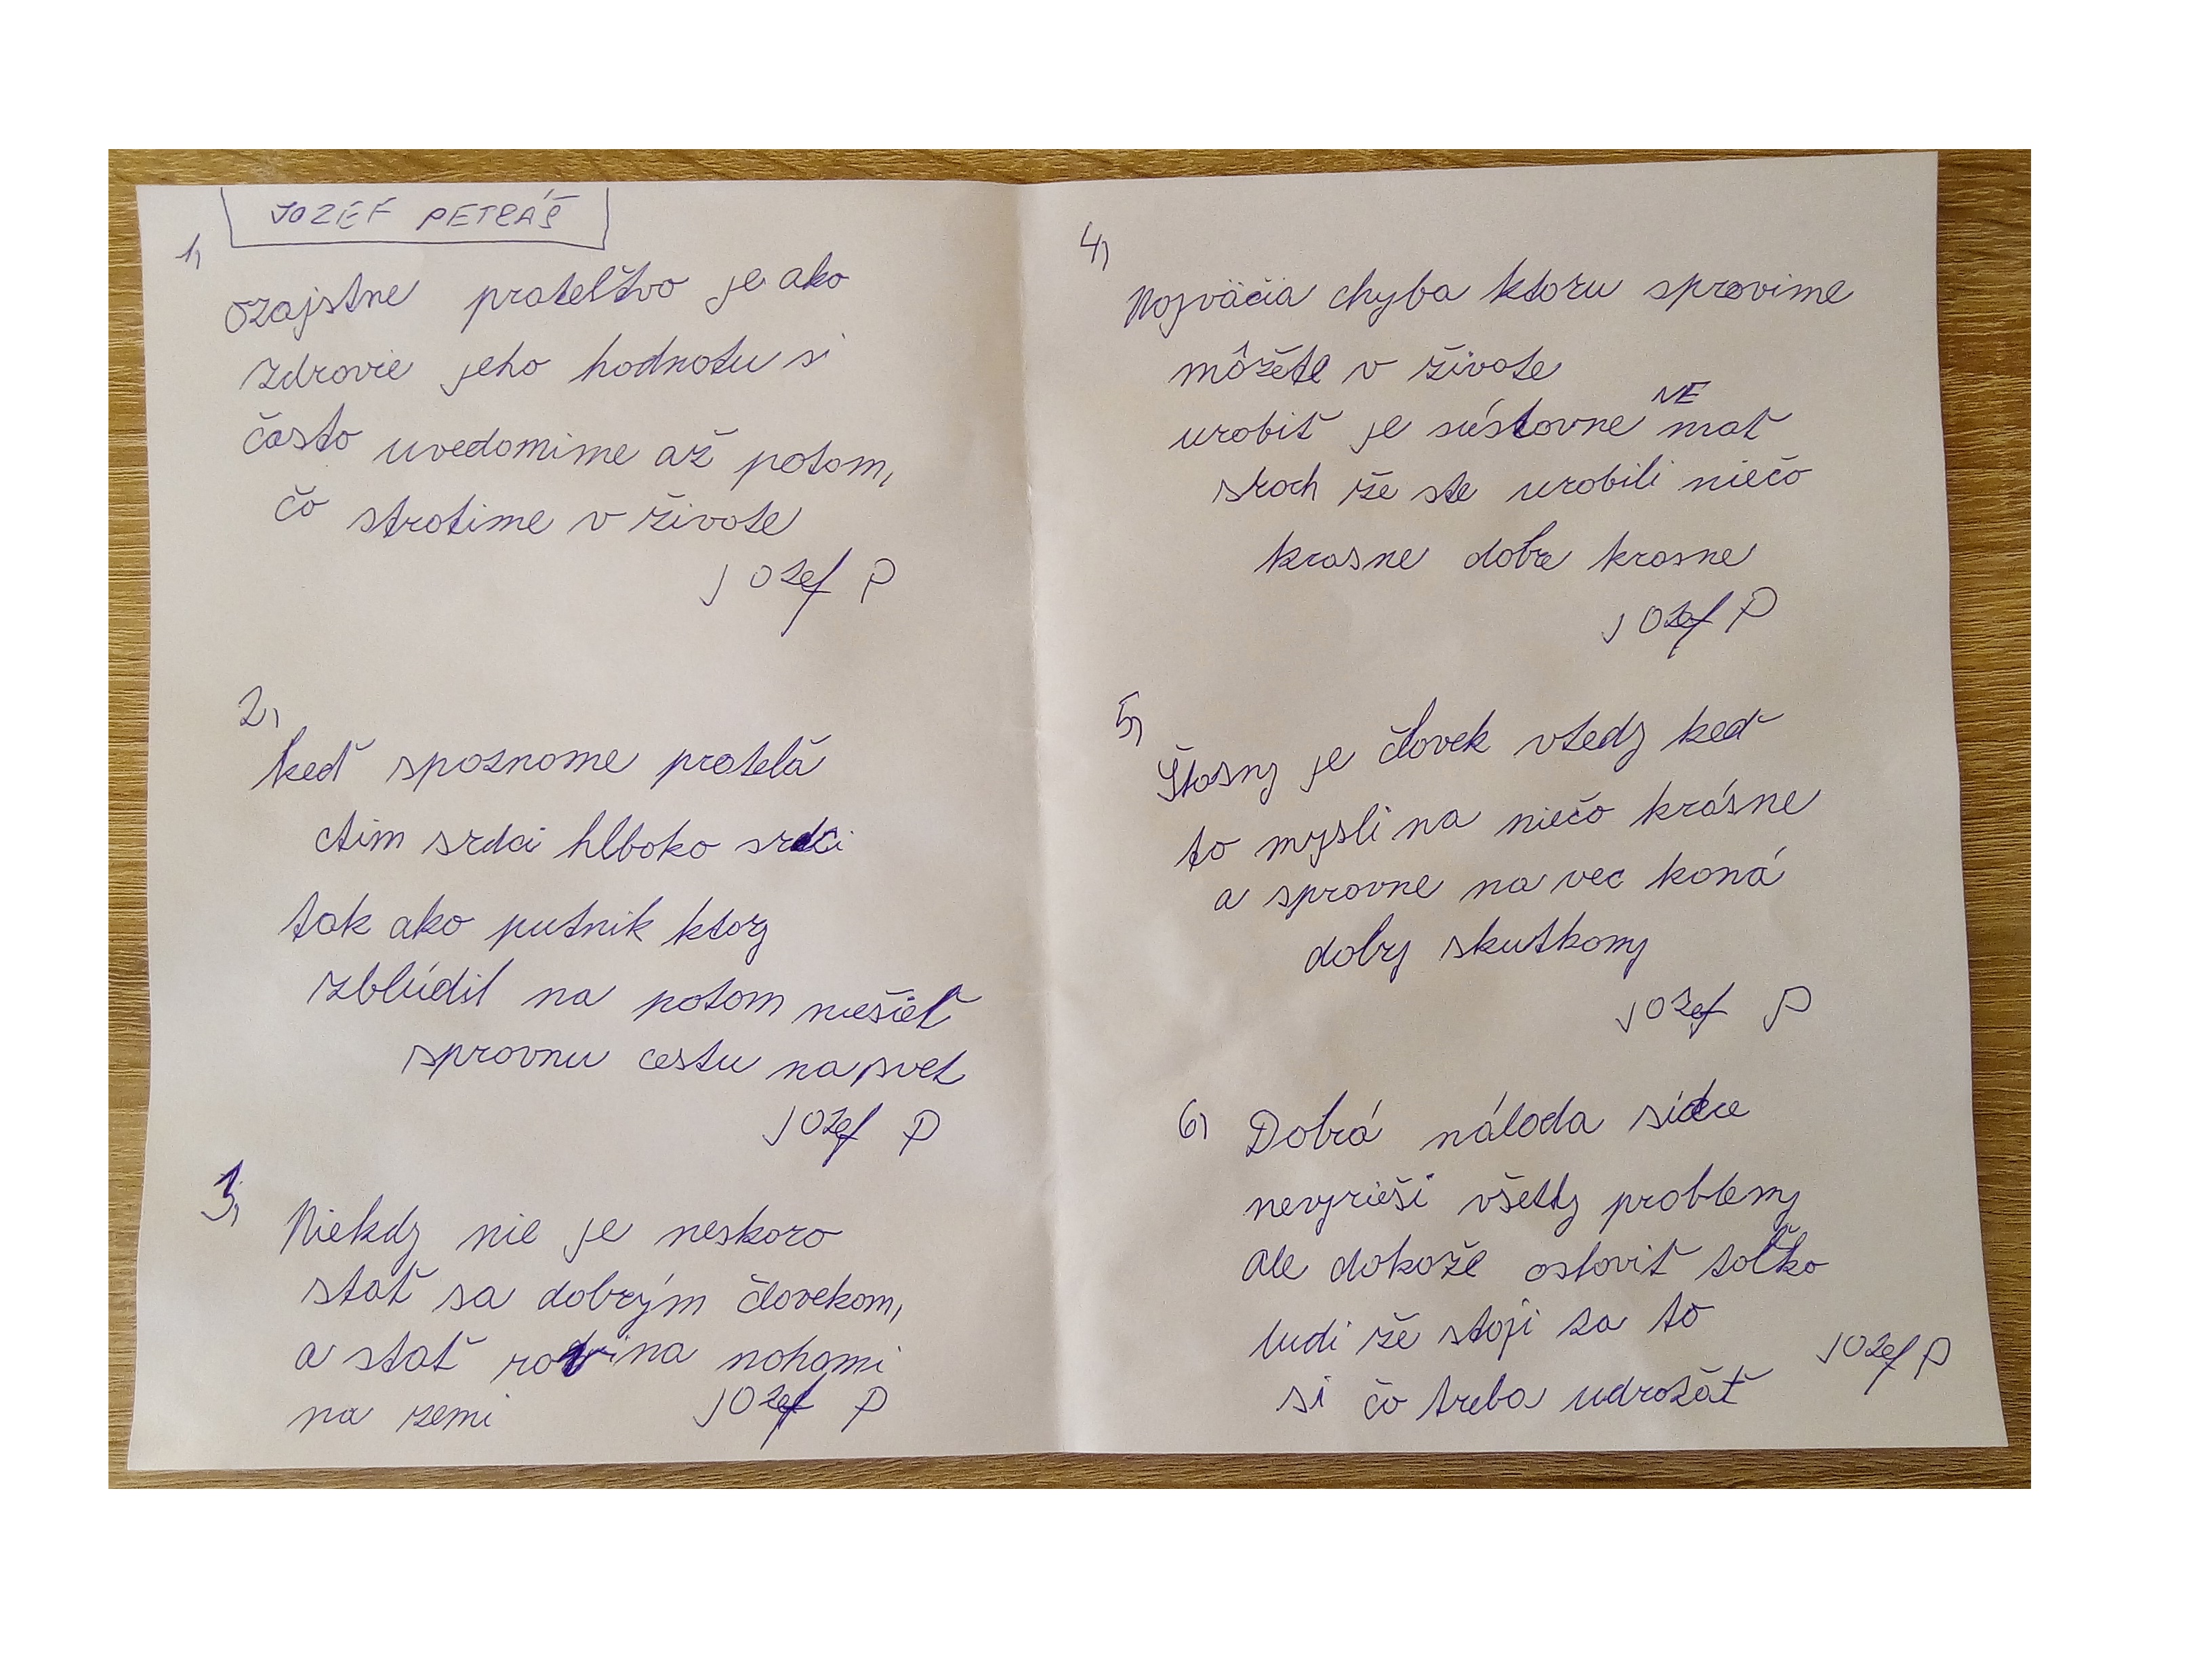 JOZEF PETRÁŠ
1,
ozajstne prateľtvo je ako
zdravie jeho hodnotu si
často uvedomime až potom,
čo stratime v živote
Jozef P
2,
keď spozname pratelă
ctim srdci hlboko srdci
tak ako putnik ktory
zblúdil na potom niešieľ
spravnu cestu na svet
Jozef P
3,
Niekdy nie je neskoro
stať sa dobrým človekom,
a stať rodina nohami
na zemi
Jozef P
4,
Najväčia chyba ktoru spravime
môžete v živote
NE
urobiť je sústavne mať
strach že ste urobili niečo
krasne dobre krasne
Jozef P
5,
Štasny je človek vtedy keď
to mysli na niečo krásne
a spravne na vec koná
dobry skutkomy
Jozef P
6,
Dobrá nálada sidce
nevyrieši všetky problemy
ale dokaže osloviť toľko
ludi že stoji za to
si čo treba udrožăť
Jozef P